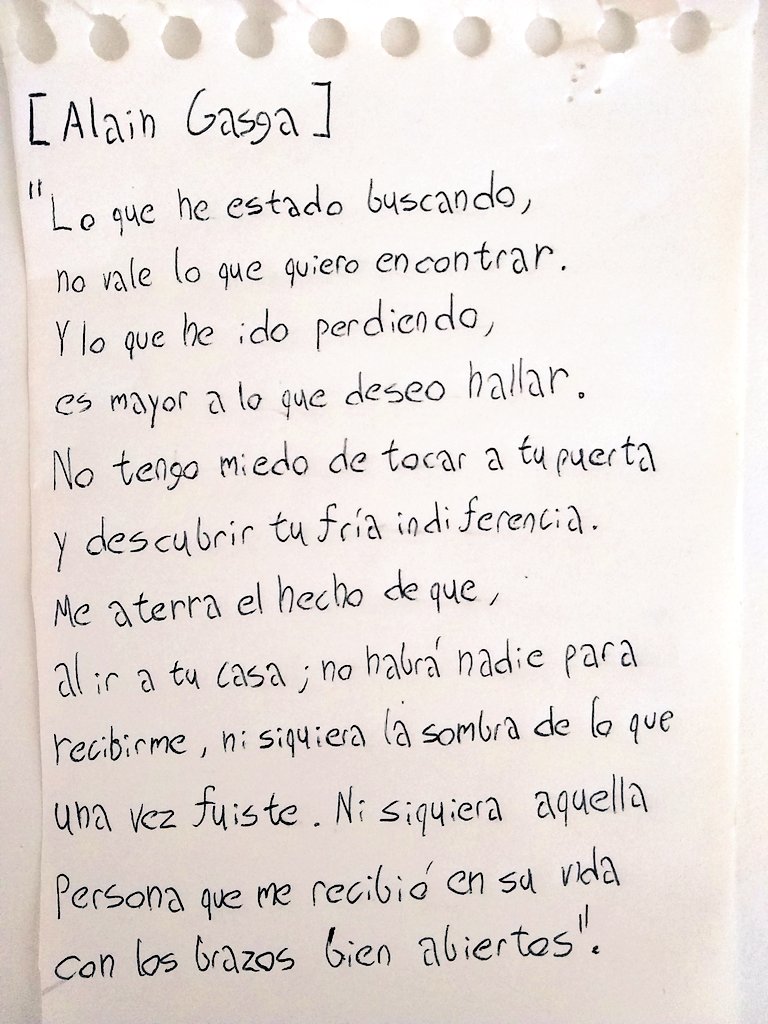 [Alain Gasga]
"Lo que he estado buscando,
no vale lo que quiero encontrar.
Y lo que he ido perdiendo,
es mayor a lo que deseo hallar.
No tengo miedo de tocar a tu puerta
y descubrir tu fría indiferencia.
Me aterra el hecho de que,
al ir a tu casa; no habrá nadie para
recibirme, ni siquiera la sombra de lo que
una vez fuiste. Ni siquiera aquella
persona que me recibió en su vida
con los brazos bien abiertos".